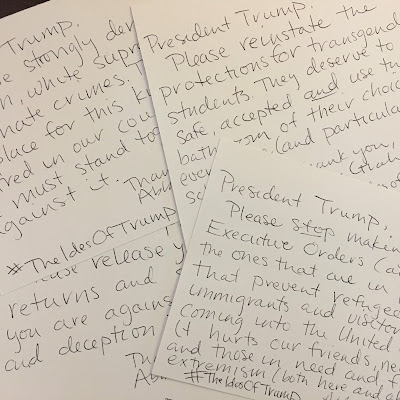 Trump.
strongly
n, white supr
hate crimes. T
lace for this ki
red in our cou
must stand to
against it. Than
#TheIdesOfTrump
President Trump,
Please reinstate the
protections for transgend
students. They deserve to
safe, accepted and use th
bath om of their choic
ever (and particula
sc ank you,
ase release y
returns and
you are against
and deception
Th
President Trump,
Please stop makin
Executive Orders (a
the ones that are in
that prevent refugee
immigrants and visitor
coming into the United
It hurts our friends, ne
and those in need and f
extremism (both here and a
#TheIdesOfTrump